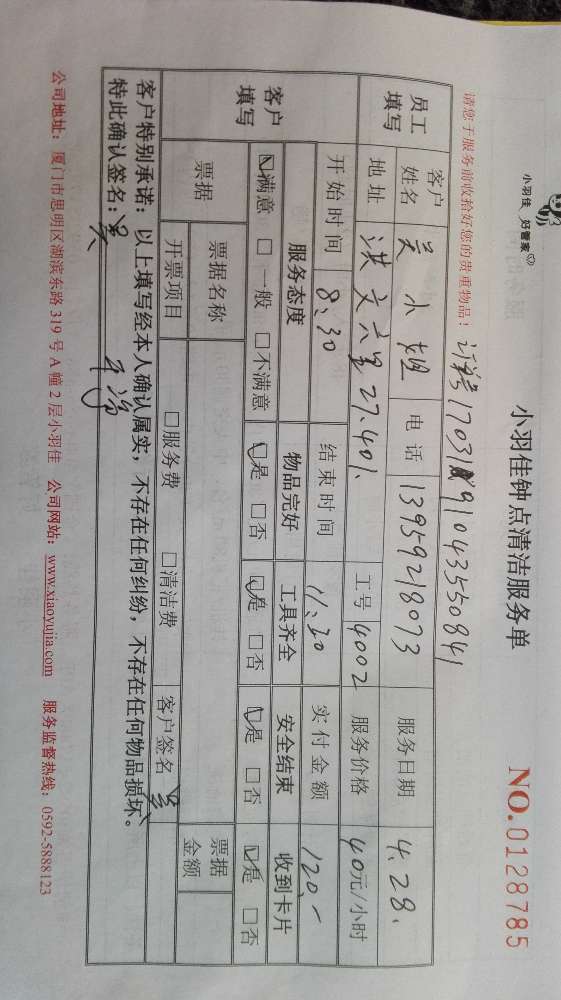 小羽佳 好管家
小羽佳钟点清洁服务单 NO.0128785
请您于服务前收拾好您的贵重物品!
员工填写 客户姓名 吴小姐 电话 13959218073 服务日期 4.28.
地址 洪文六里27.401. 工号 4002 服务价格 40元/小时
开始时间 8:30 结束时间 11:30 实付金额 120.-
客户填写 服务态度 物品完好 工具齐全 安全结束 收到卡片
☑满意 □一般 □不满意 ☑是 □否 ☑是 □否 ☑是 □否 ☑是 □否
票据 票据名称 票据金额
开票项目 □服务费 □清洁费 客户签名 吴
客户特别承诺:以上填写经本人确认属实,不存在任何纠纷,不存在任何物品损坏。
特此确认签名:吴
公司地址:厦门市思明区湖滨东路319号A幢2层小羽佳 公司网站:www.xiaoyujia.com 服务监督热线:0592-5888123